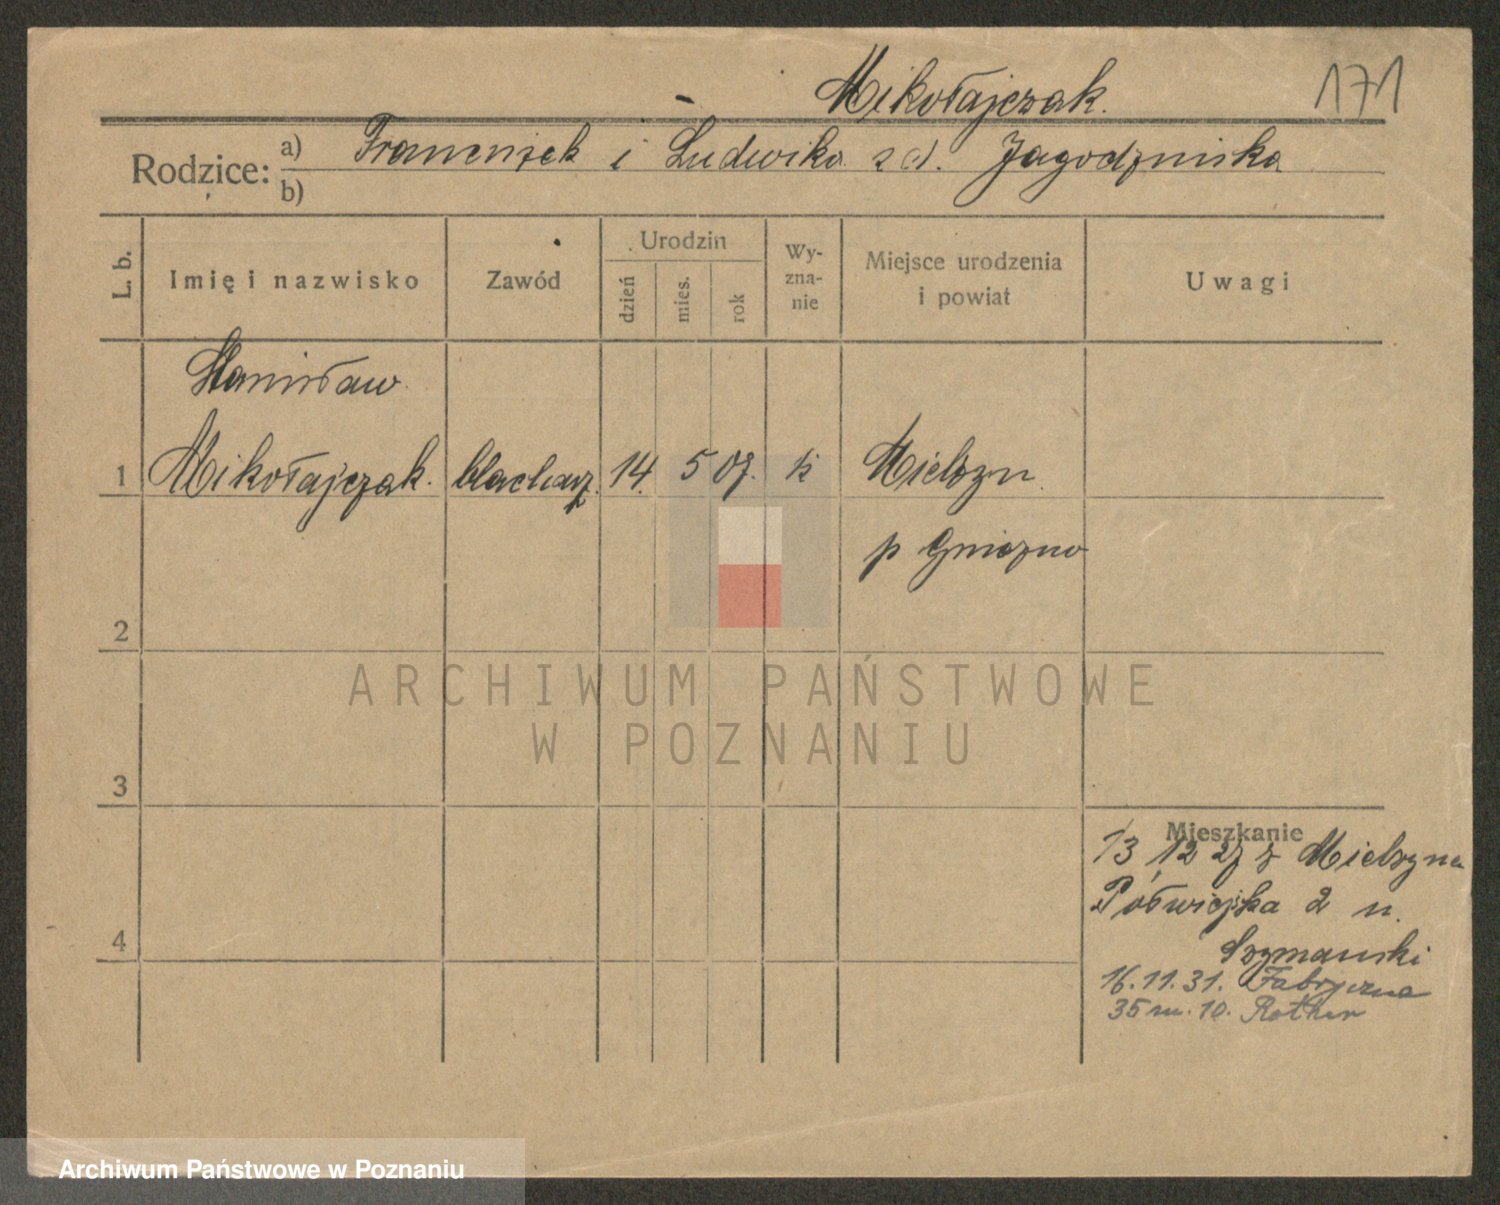 Mikołajczak. 171
Rodzice: a) Franciszek i Ludwika zd. Jagodzińska
b)
L. b. Imię i nazwisko Zawód Urodzin dzień mies. rok Wy-zna-nie Miejsce urodzenia i powiat Uwagi
Stanisław
1 Mikołajczak. blacharz. 14. 5 07. k Mielżyn
p Gniezno
2
ARCHIWUM PAŃSTWOWE
W POZNANIU
3
Mieszkanie
13 12 27 z Mielżyna
Półwiejska 2 u.
Szymański
4
16.11.31. Fabryczna
35 m. 10. Rother
Archiwum Państwowe w Poznaniu